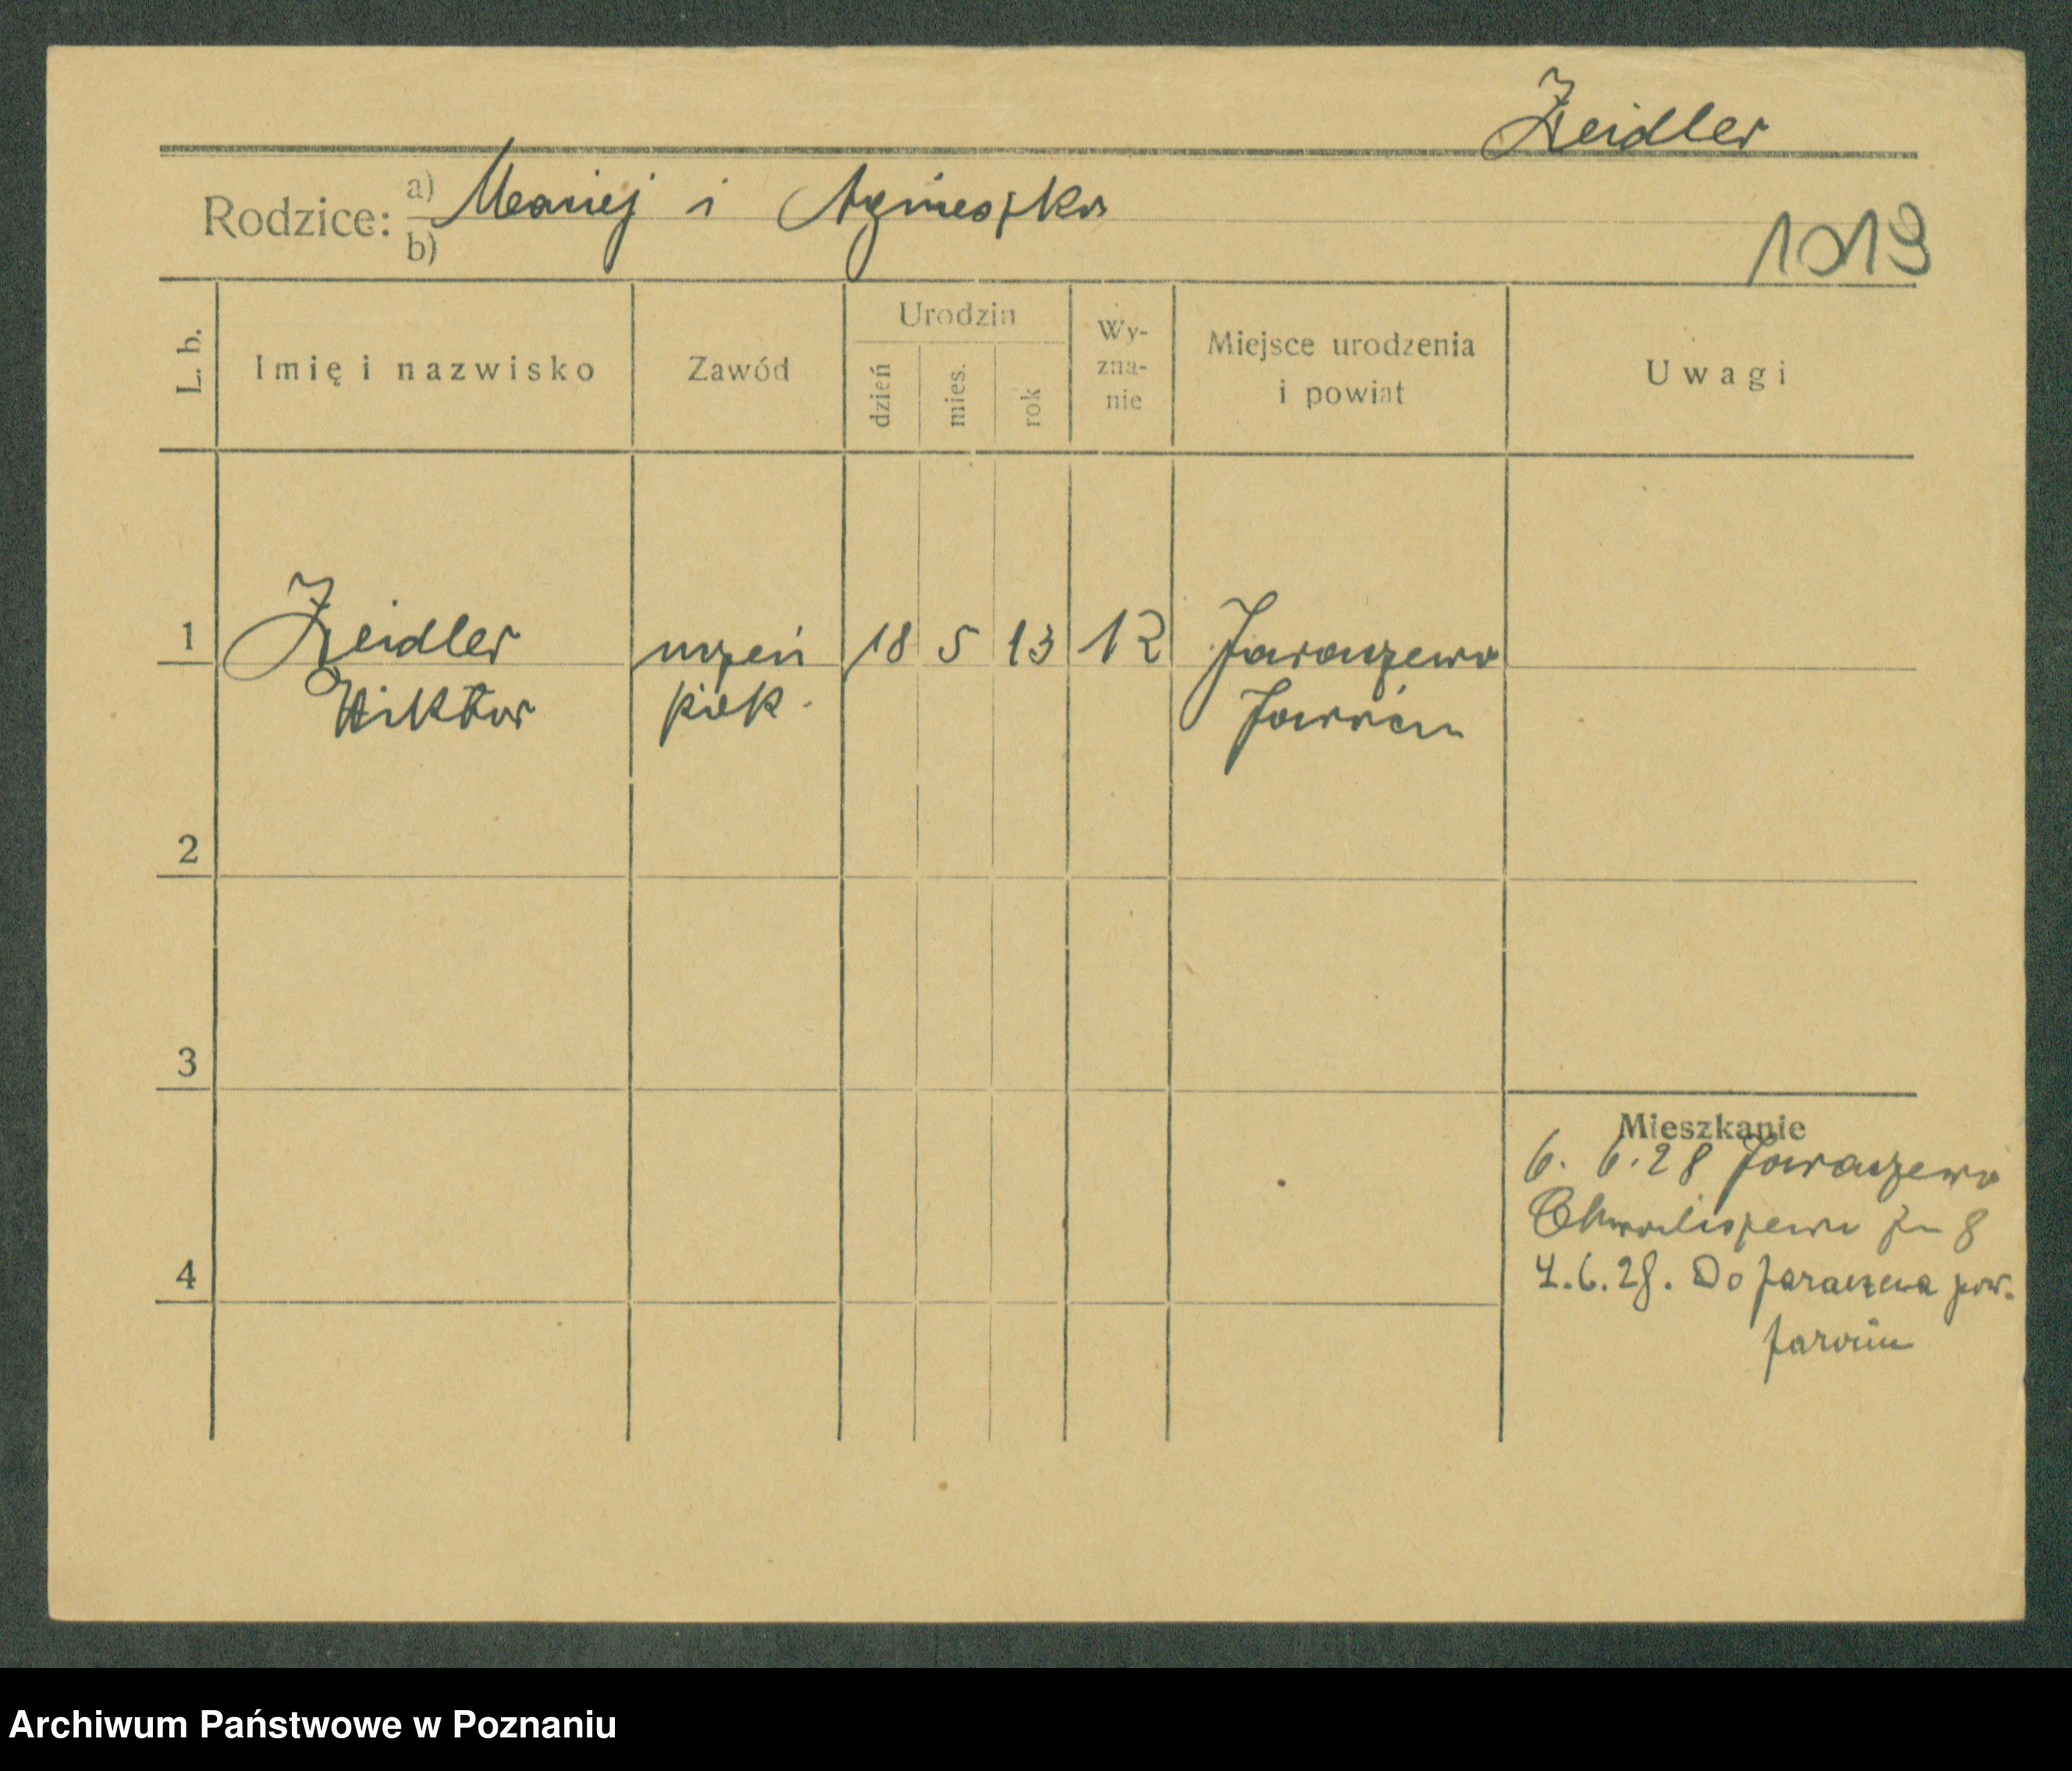 Zeidler
Rodzice: a) Maciej i Agnieszka
b)
1013
L. b.
Imię i nazwisko
Zawód
Urodzin
dzień
mies.
rok
Wy-
zna-
nie
Miejsce urodzenia
i powiat
Uwagi
1 Zeidler uczeń 18 5 13 Jaraczewo
Wiktor piek. Jarocin
2
3
4
Mieszkanie
6. 6.28 Jaraczewo
Chwaliszewo 8
4.6.28. Do Jaraczewa pow.
Jarocin
Archiwum Państwowe w Poznaniu